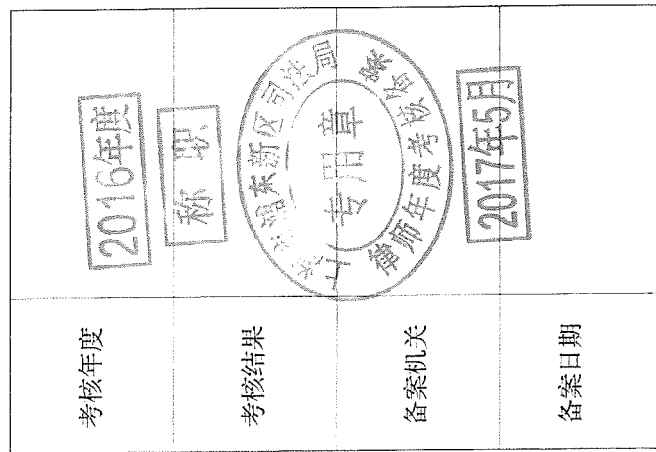 考核年度
2016年度
考核结果
称职
备案机关
上海市浦东新区司法局
律师年度考核备案
专用章
备案日期
2017年5月